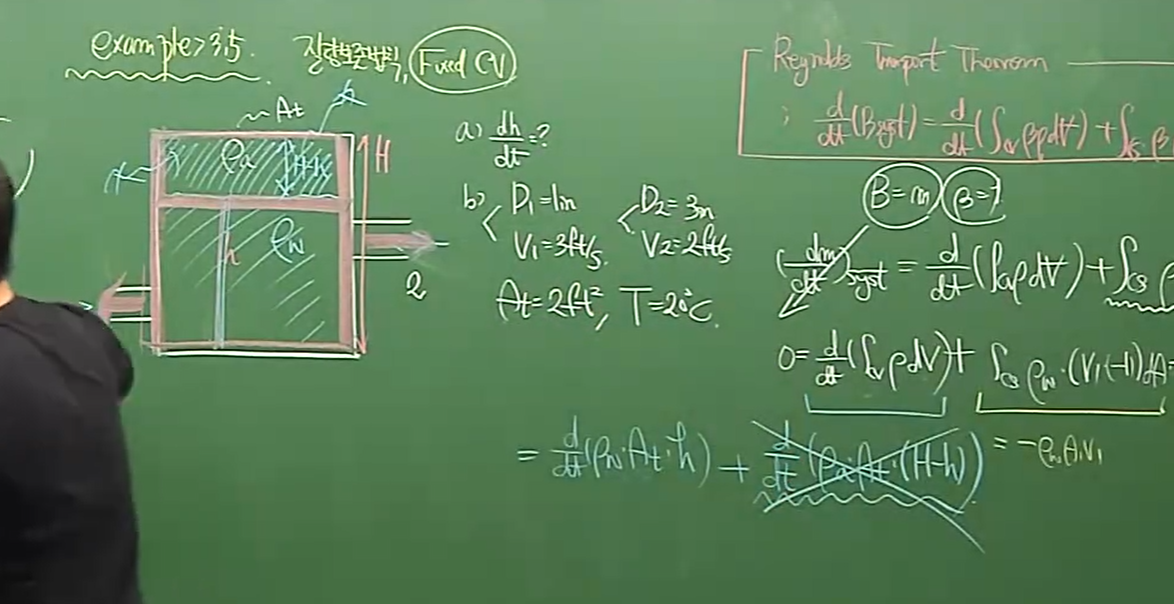 example>3.5. 질량보존법칙, Fixed CV
At
ρa H-h H
h ρw
2
a) dh/dt=?
b) D₁=1in D₂=3in
V₁=3ft/s. V₂=2ft/s
At=2ft², T=20°C.
Reynolds Transport Theorem
; d/dt(Bsyst)=d/dt(∫cv βρdV)+∫cs β
B=m β=1
(dm/dt)syst = d/dt(∫cv ρdV)+∫cs ρ
0=d/dt(∫cv ρdV)+ ∫cs ρw·(V₁(-1))dA=
= d/dt(ρw·At·h) + d/dt(ρa·At·(H-h)) = -ρwA₁V₁